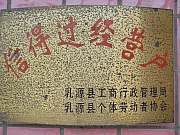 信得过经营户
乳源县工商行政管理局
乳源县个体劳动者协会